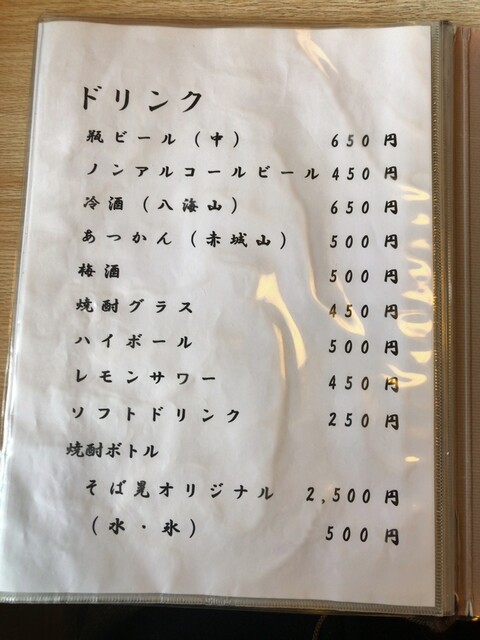 ドリンク
瓶ビール（中） 650円
ノンアルコールビール 450円
冷酒（八海山） 650円
あつかん（赤城山） 500円
梅酒 500円
焼酎グラス 450円
ハイボール 500円
レモンサワー 450円
ソフトドリンク 250円
焼酎ボトル
そば晃オリジナル 2,500円
（水・氷） 500円